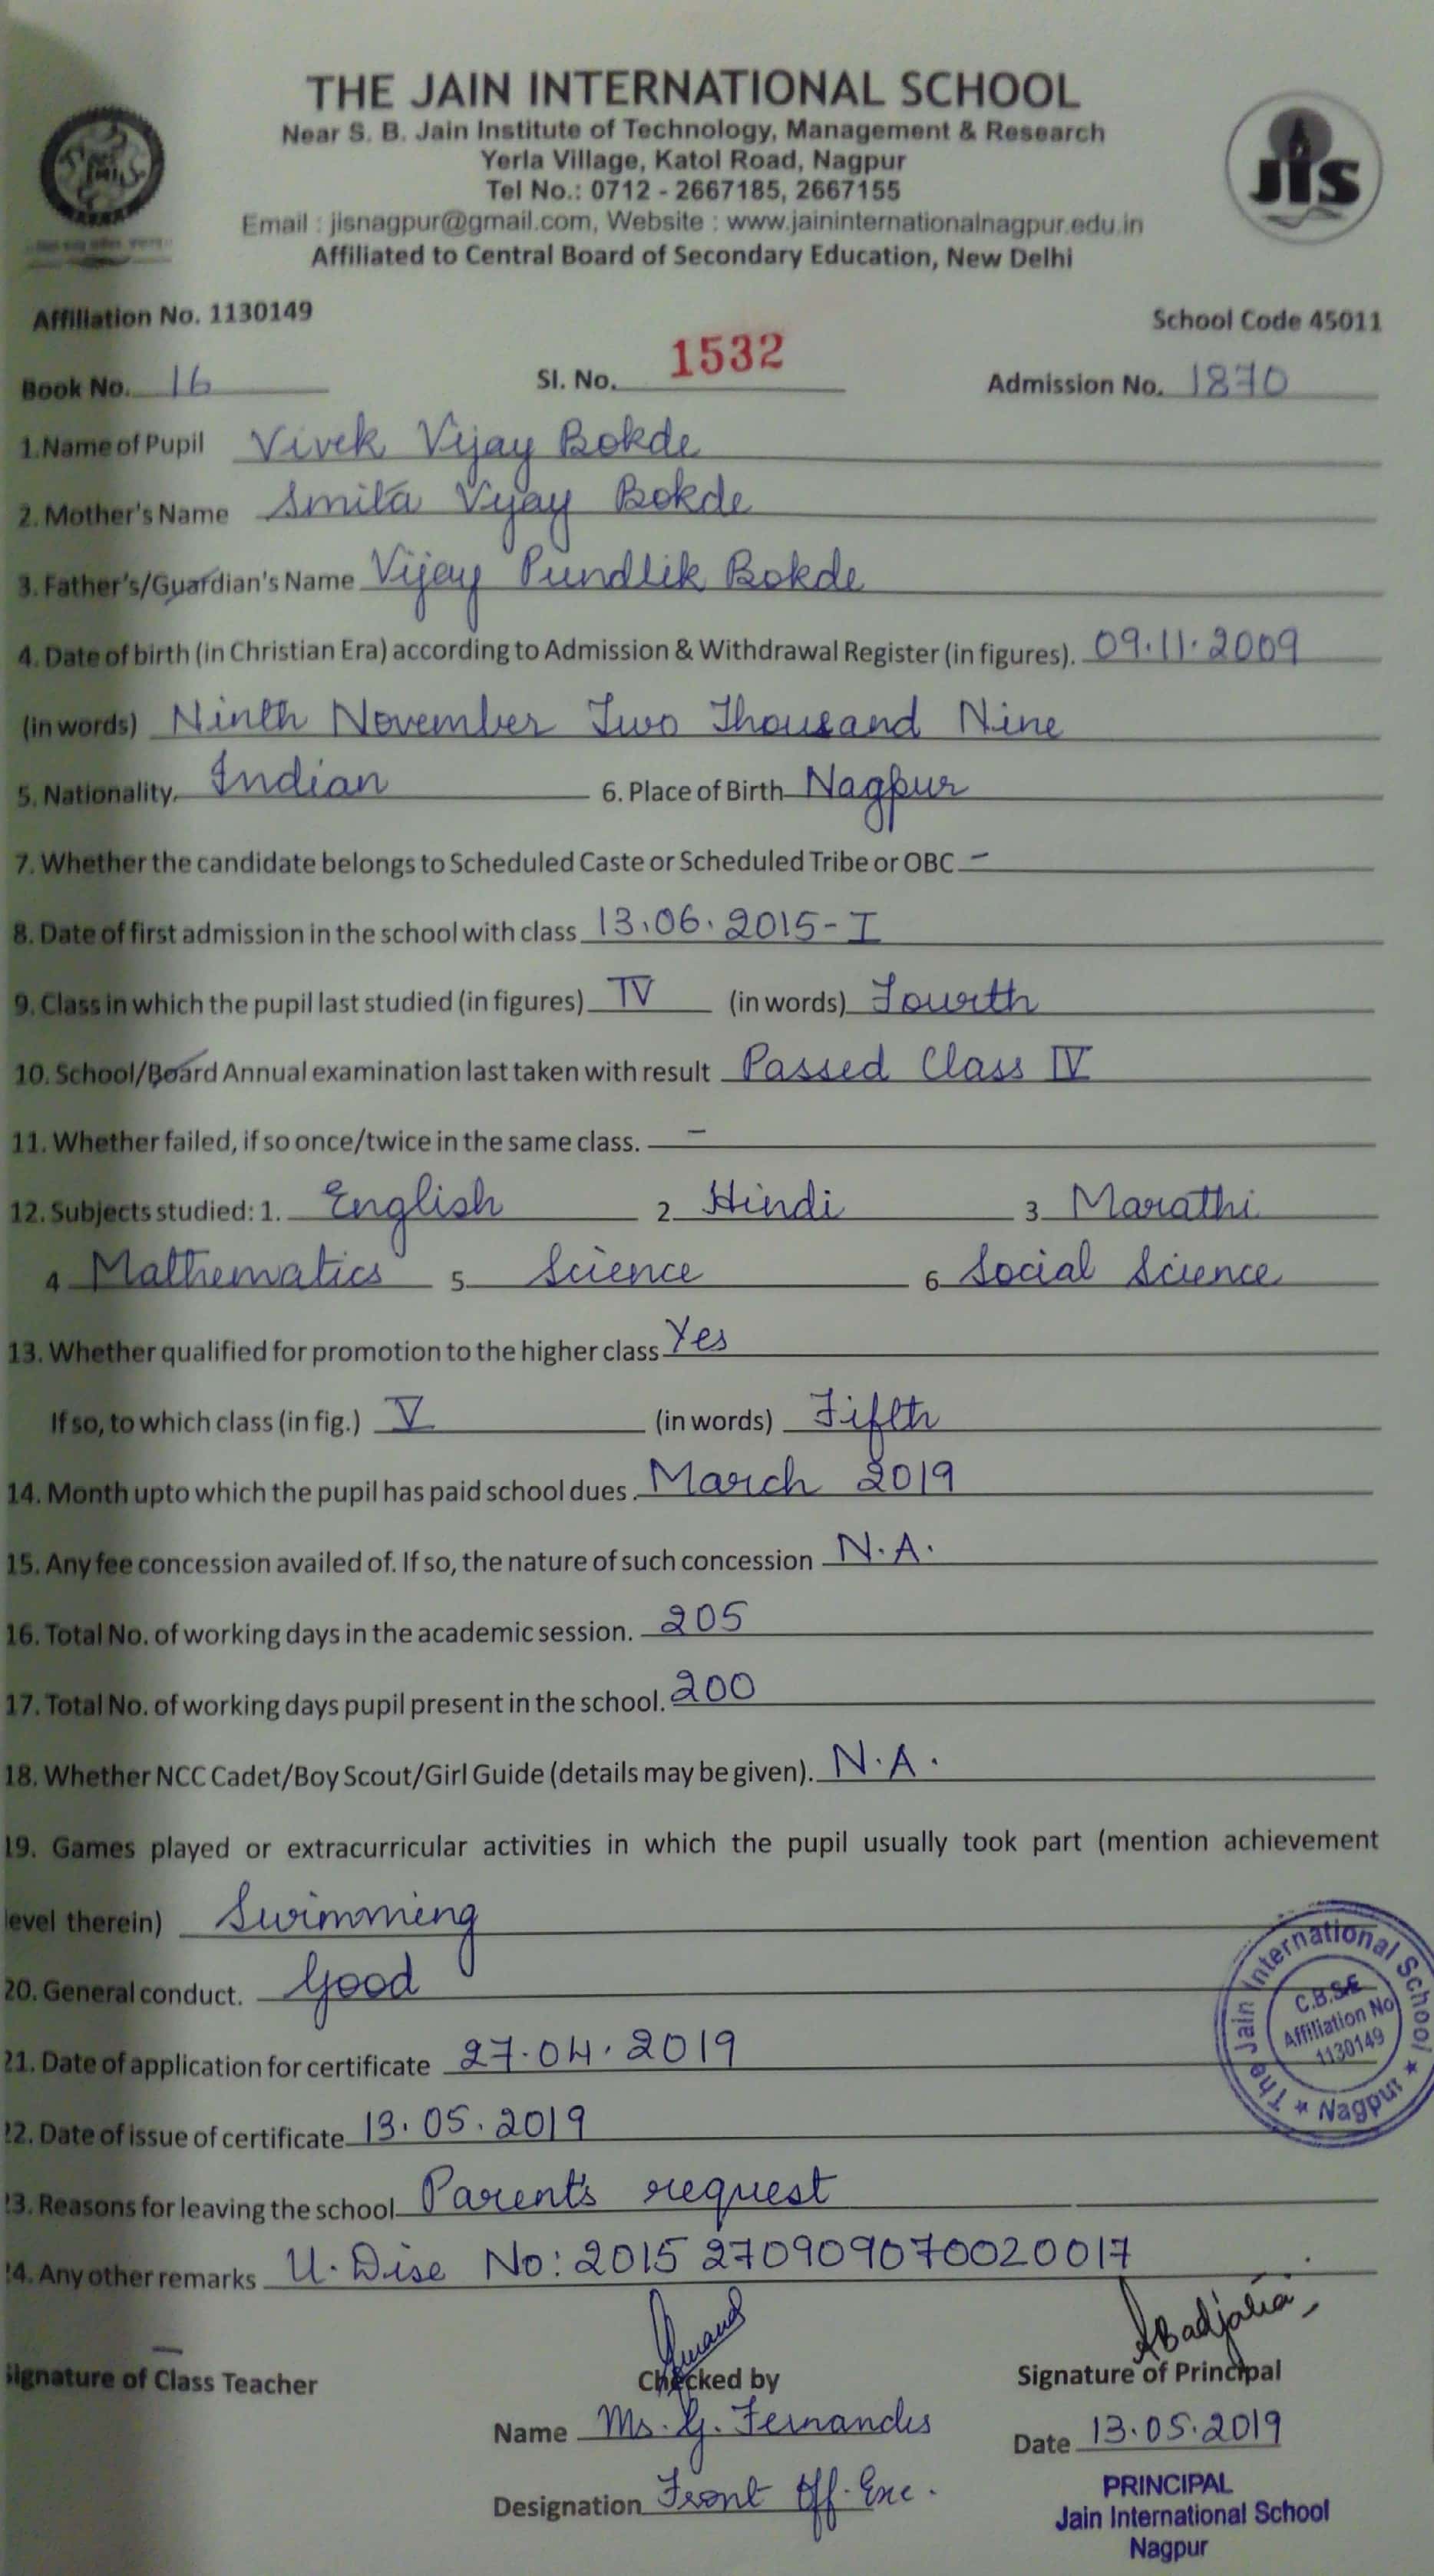 THE JAIN INTERNATIONAL SCHOOL
Near S. B. Jain Institute of Technology, Management & Research
Yerla Village, Katol Road, Nagpur
Tel No.: 0712 - 2667185, 2667155
Email : jisnagpur@gmail.com, Website : www.jaininternationalnagpur.edu.in
Affiliated to Central Board of Secondary Education, New Delhi
JIS
Affiliation No. 1130149 School Code 45011
Book No. 16 Sl. No. 1532 Admission No. 1870
1. Name of Pupil Vivek Vijay Bokde
2. Mother's Name Smita Vijay Bokde
3. Father's/Guardian's Name Vijay Pundlik Bokde
4. Date of birth (in Christian Era) according to Admission & Withdrawal Register (in figures). 09.11.2009
(in words) Ninth November Two Thousand Nine
5. Nationality. Indian 6. Place of Birth Nagpur
7. Whether the candidate belongs to Scheduled Caste or Scheduled Tribe or OBC -
8. Date of first admission in the school with class 13.06.2015 - I
9. Class in which the pupil last studied (in figures) IV (in words) Fourth
10. School/Board Annual examination last taken with result Passed Class IV
11. Whether failed, if so once/twice in the same class. -
12. Subjects studied: 1. English 2 Hindi 3 Marathi
4 Mathematics 5 Science 6 Social Science
13. Whether qualified for promotion to the higher class Yes
If so, to which class (in fig.) V (in words) Fifth
14. Month upto which the pupil has paid school dues. March 2019
15. Any fee concession availed of. If so, the nature of such concession N.A.
16. Total No. of working days in the academic session. 205
17. Total No. of working days pupil present in the school. 200
18. Whether NCC Cadet/Boy Scout/Girl Guide (details may be given). N.A.
19. Games played or extracurricular activities in which the pupil usually took part (mention achievement
level therein) Swimming
20. General conduct. Good
The Jain International School ★ Nagpur ★
C.B.S.E
Affiliation No
1130149
21. Date of application for certificate 27.04.2019
22. Date of issue of certificate 13.05.2019
23. Reasons for leaving the school Parent's request
24. Any other remarks U.Dise No: 2015 270909070020017
Signature of Class Teacher Checked by Signature of Principal
Name Ms. G. Fernandes Date 13.05.2019
Designation Front Off. Exe.
PRINCIPAL
Jain International School
Nagpur